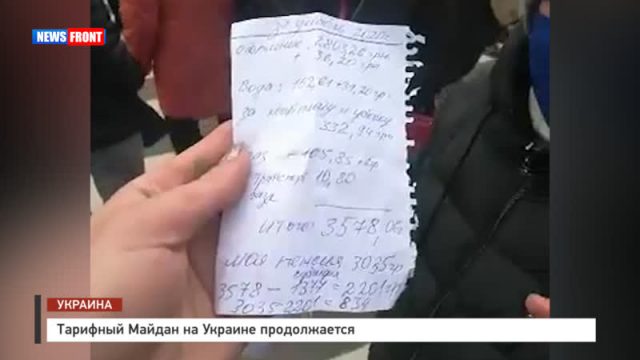 NEWS FRONT
за декабрь 2020
Отопление 2803,26 грн
+ 36,20 грн
Вода: 152,61+31,20 гр.
за квартиру и уборку
332,94 грн
газ - 105,85
транспорт 10,80
газа
Итого: 3578,06
Моя пенсия 3035 гр
субсидия
3578 - 1377 = 2201 гр
3035-2201 = 834
УКРАИНА
Тарифный Майдан на Украине продолжается